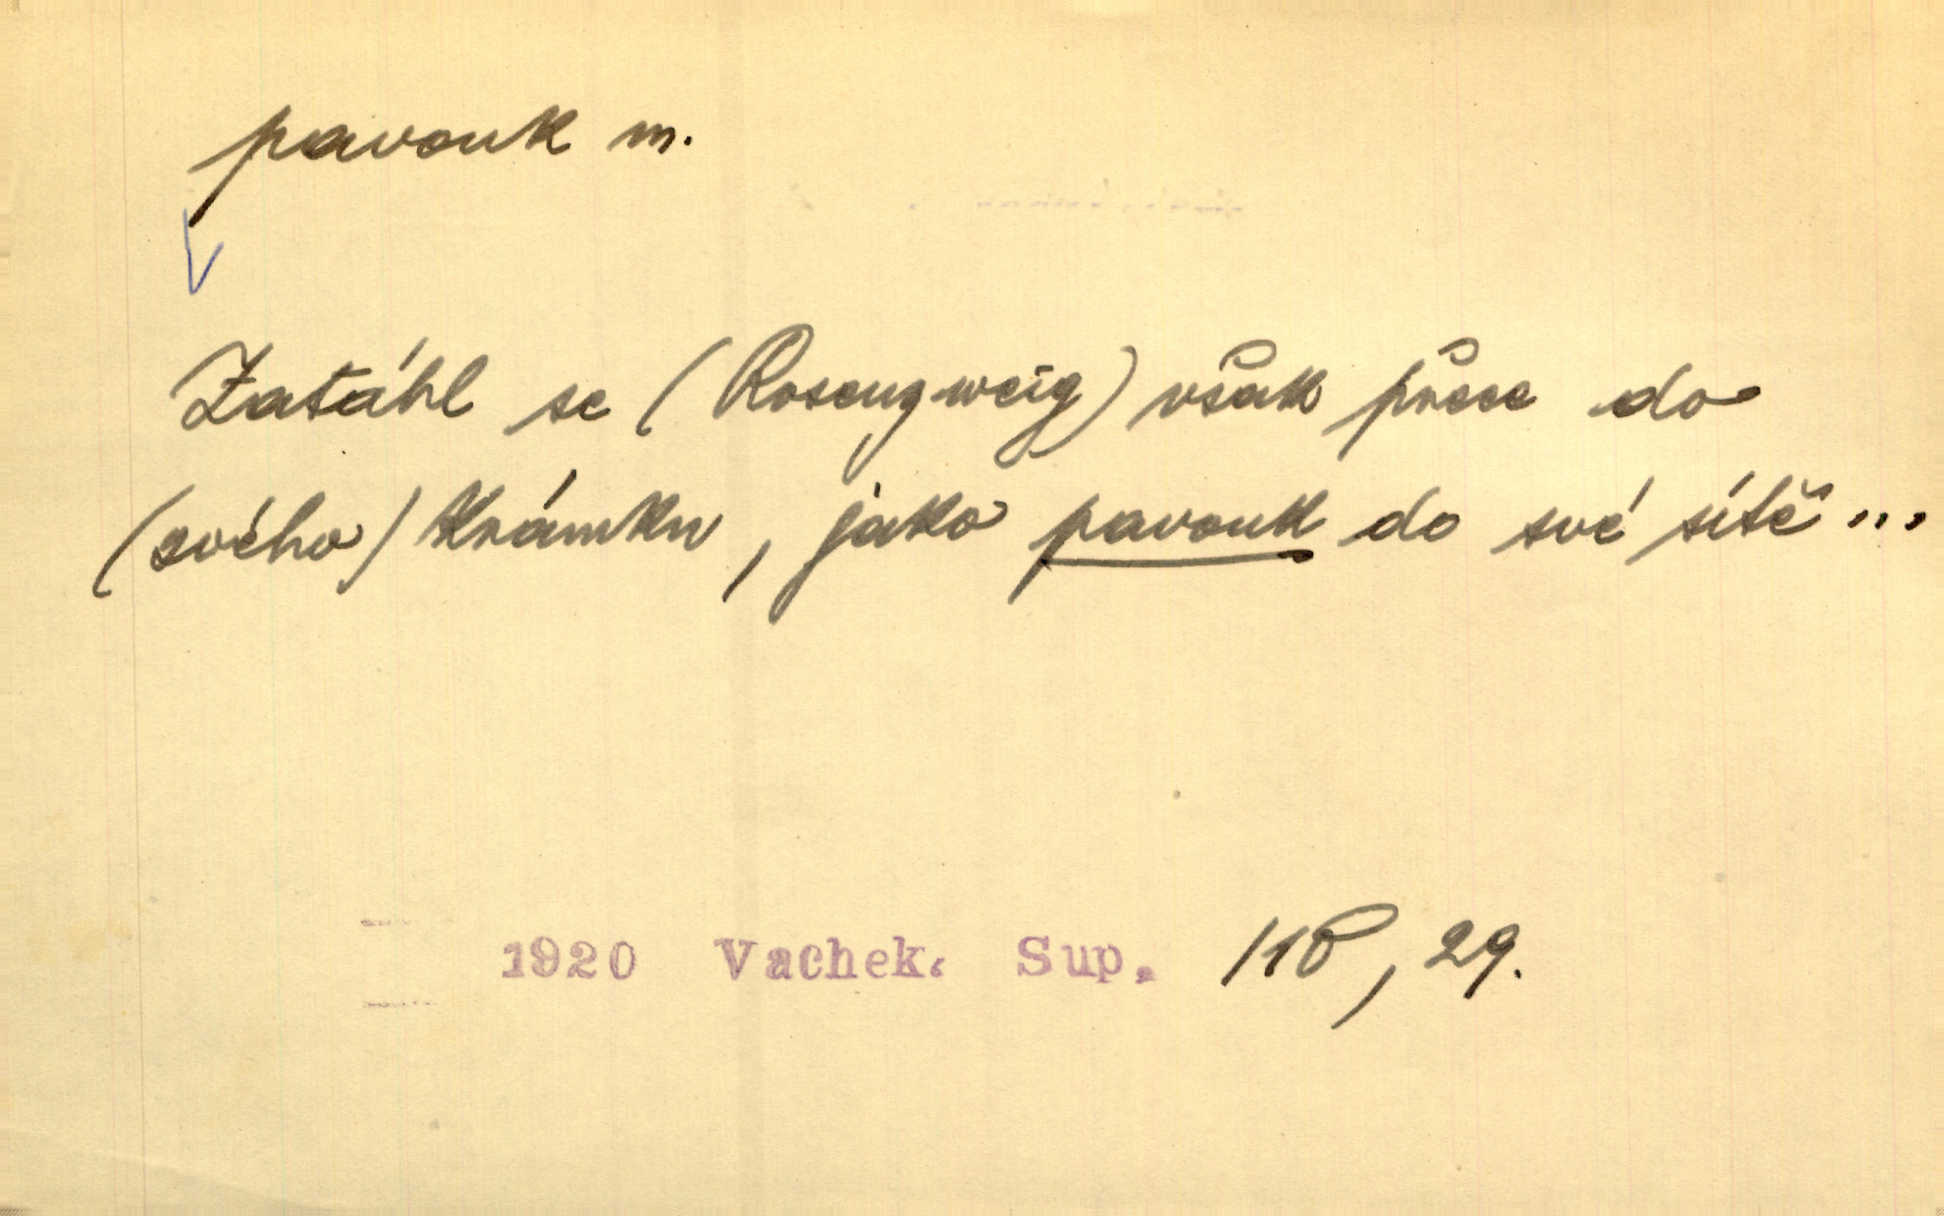 pavouk m.
Zatáhl se (Rosenzweig) však přece do
(svého) krámku, jako pavouk do své sítě...
1920 Vachek. Sup. 118, 29.